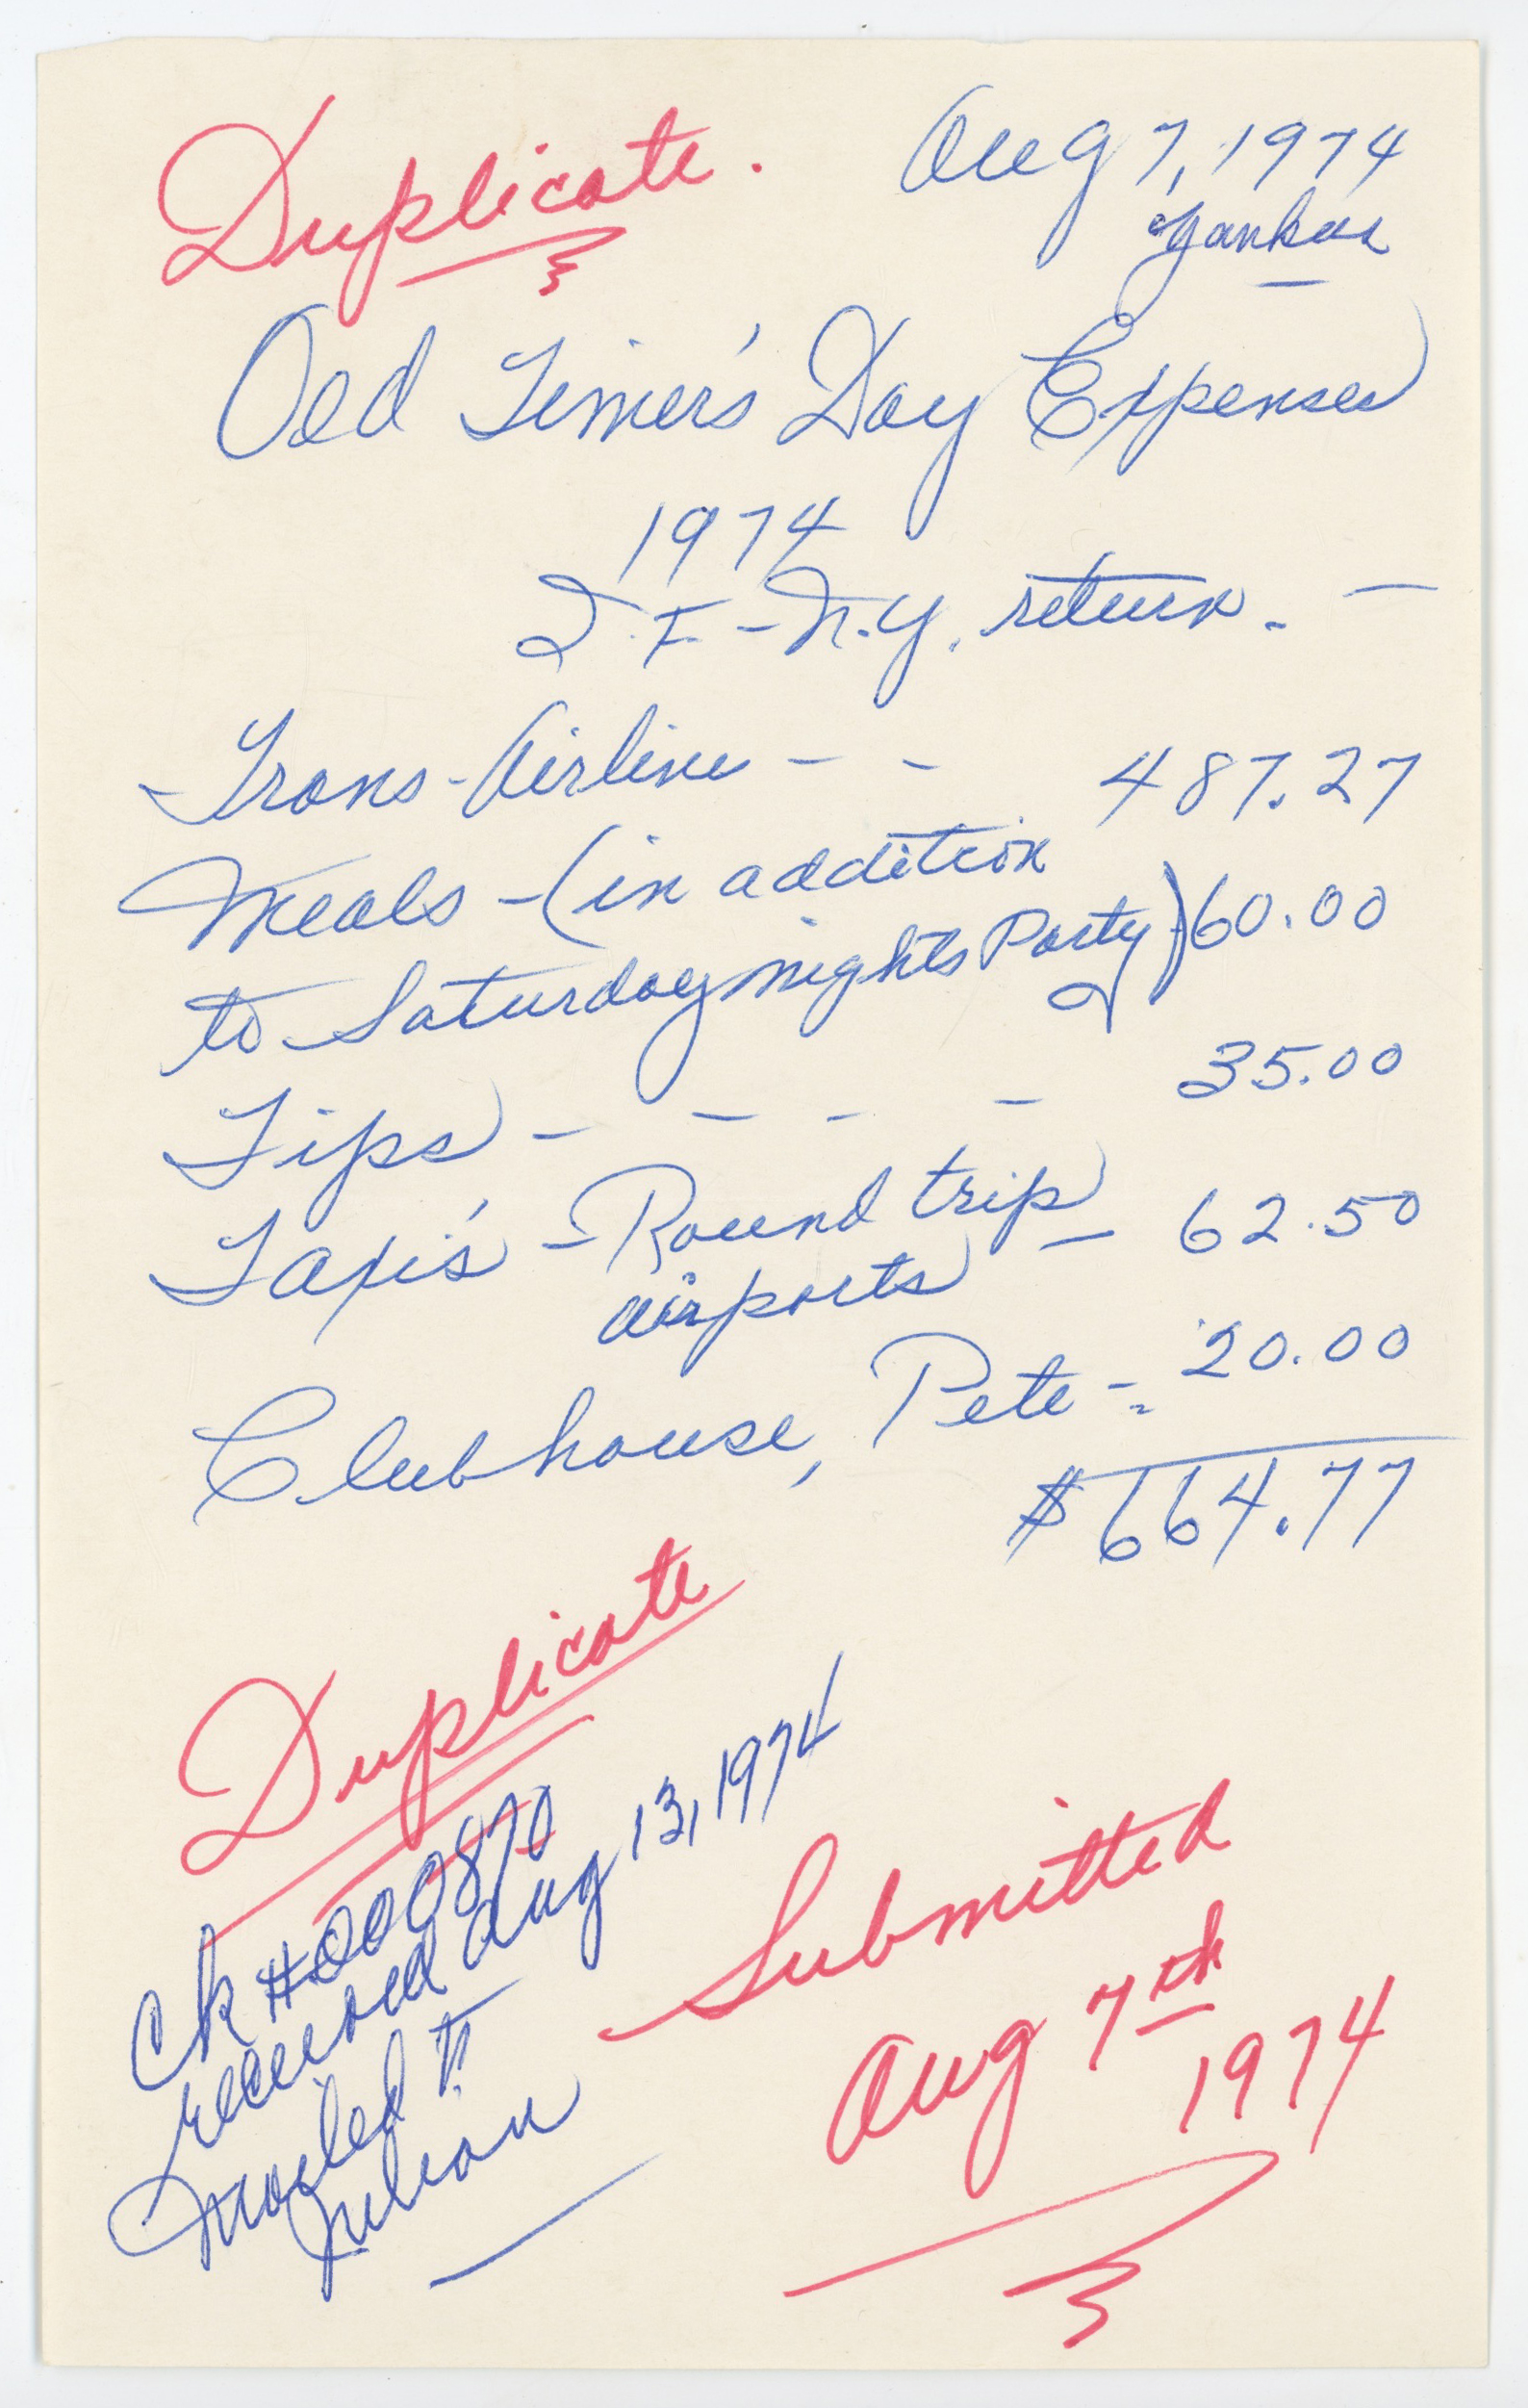 Duplicate. Aug 7, 1974
Yankee
Old Timer's Day Expenses
1974
S.F. - N.Y. return. -
Trans-Airline - - 487.27
Meals - (in addition
to Saturday nights Party) 60.00
Tips - - - - 35.00
Taxi's - Round trip - 62.50
airports
Clubhouse, Pete - 20.00
$664.77
Duplicate
Ck #000870
received Aug 13, 1974
mailed to
Julian
Submitted
Aug 7th
1974